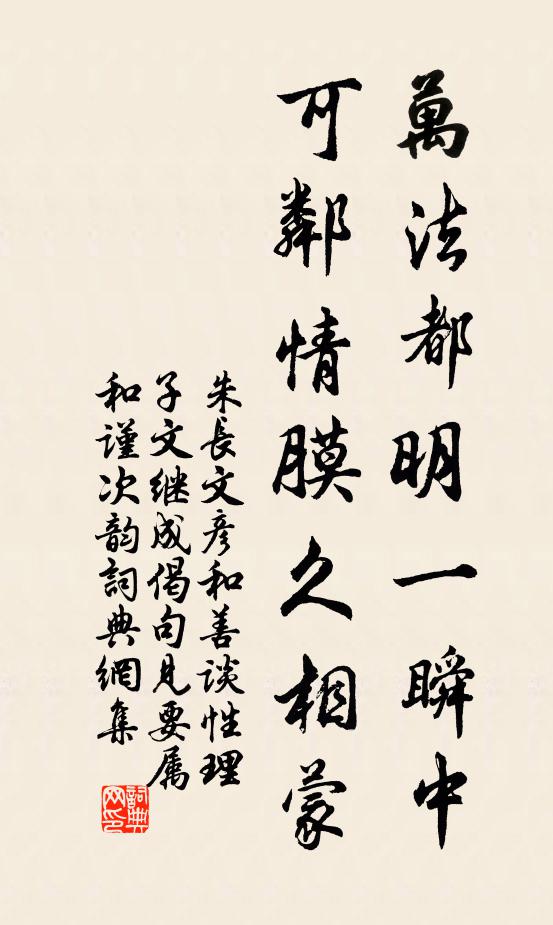 萬法都明一瞬中
可鄰情膜久相蒙
朱長文彦和善谈性理
子文继成偈句見要属
和謹次韵詞典網集
詞典
网印